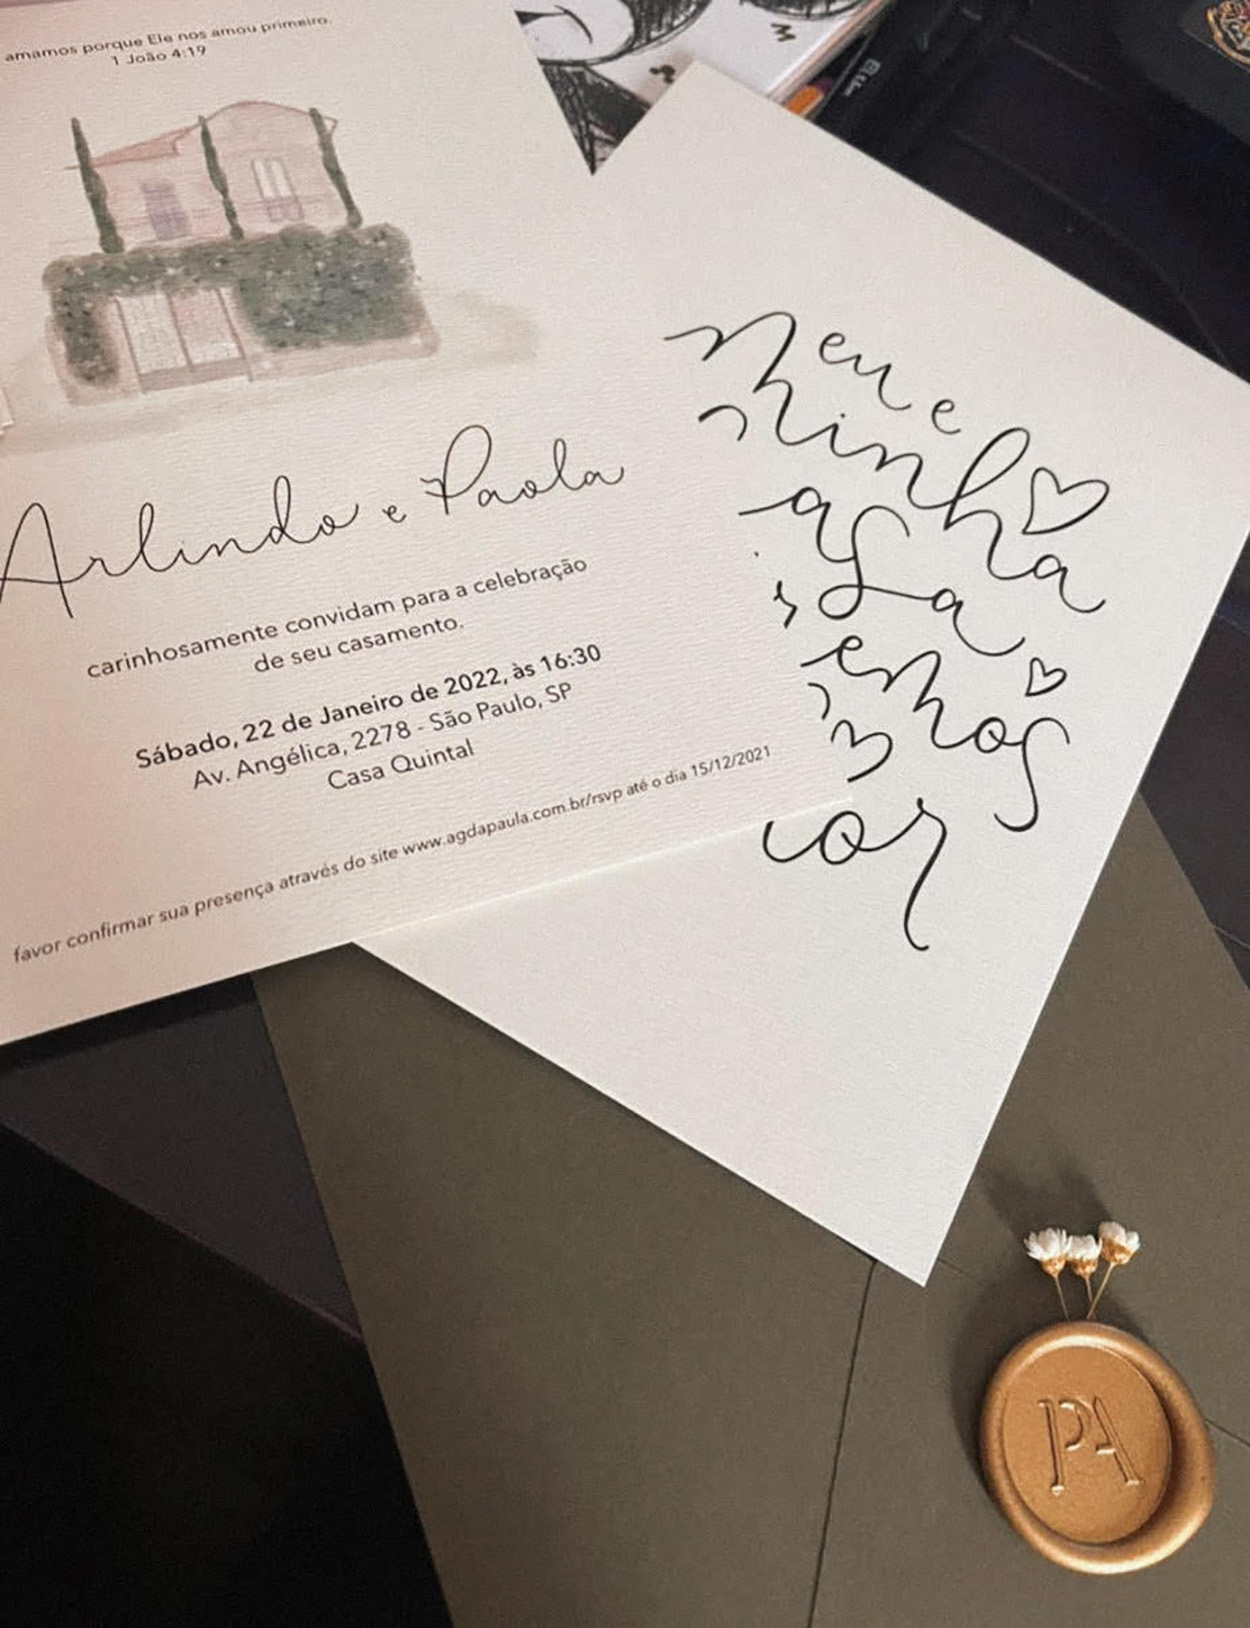 amamos porque Ele nos amou primeiro.
1 João 4:19
Arlindo e Paola
carinhosamente convidam para a celebração
de seu casamento.
Sábado, 22 de Janeiro de 2022, às 16:30
Av. Angélica, 2278 - São Paulo, SP
Casa Quintal
favor confirmar sua presença através do site www.agdapaula.com.br/rsvp até o dia 15/12/2021
eu e
inha
PA